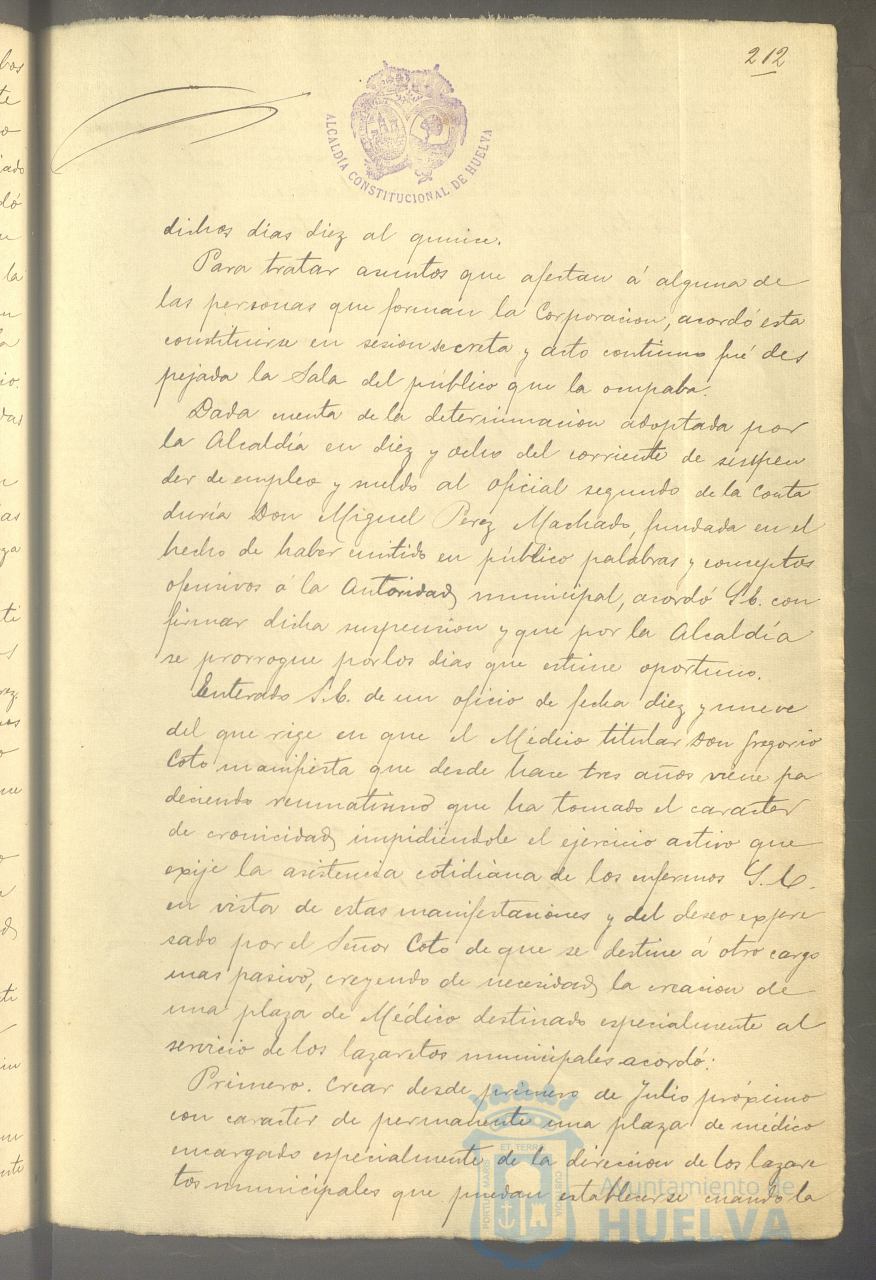 212
ALCALDÍA CONSTITUCIONAL DE HUELVA
dichos dias diez al quince.
Para tratar asuntos que afectan á alguna de
las personas que forman la Corporacion, acordó esta
constituirse en sesion secreta y acto continuo fué des
pejada la Sala del público que la ocupaba.
Dada cuenta de la determinacion adoptada por
la Alcaldía en diez y ocho del corriente de suspen
der de empleo y sueldo al oficial segundo de la Conta
duría Don Miguel Perez Machado, fundada en el
hecho de haber emitido en público palabras y conceptos
ofensivos á la Autoridad municipal, acordó S.C. con
firmar dicha suspension y que por la Alcaldía
se prorrogue por los dias que estime oportuno.
Enterado S.C. de un oficio de fecha diez y nueve
del que rige en que el Médico titular Don Gregorio
Coto manifiesta que desde hace tres años viene pa
deciendo reumatismo que ha tomado el caracter
de cronicidad impidiéndole el ejercicio activo que
exije la asistencia cotidiana de los enfermos S.C.
en vista de estas manifestaciones y del deseo expre
sado por el Señor Coto de que se destine á otro cargo
mas pasivo, creyendo de necesidad la creacion de
una plaza de Médico destinado especialmente al
servicio de los lazaretos municipales acordó:
Primero. Crear desde primero de Julio próximo
con caracter de permanente una plaza de médico
encargado especialmente de la direccion de los lazare
tos municipales que puedan establecerse cuando la
PORTUS MARIS ET TERRÆ CUSTODIA
Ayuntamiento de
HUELVA